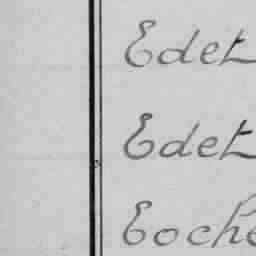 Edet
Edet
Eoche